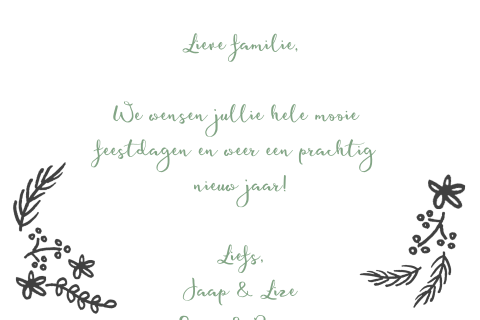 Lieve familie,
We wensen jullie hele mooie
feestdagen en weer een prachtig
nieuw jaar!
Liefs,
Jaap & Lize